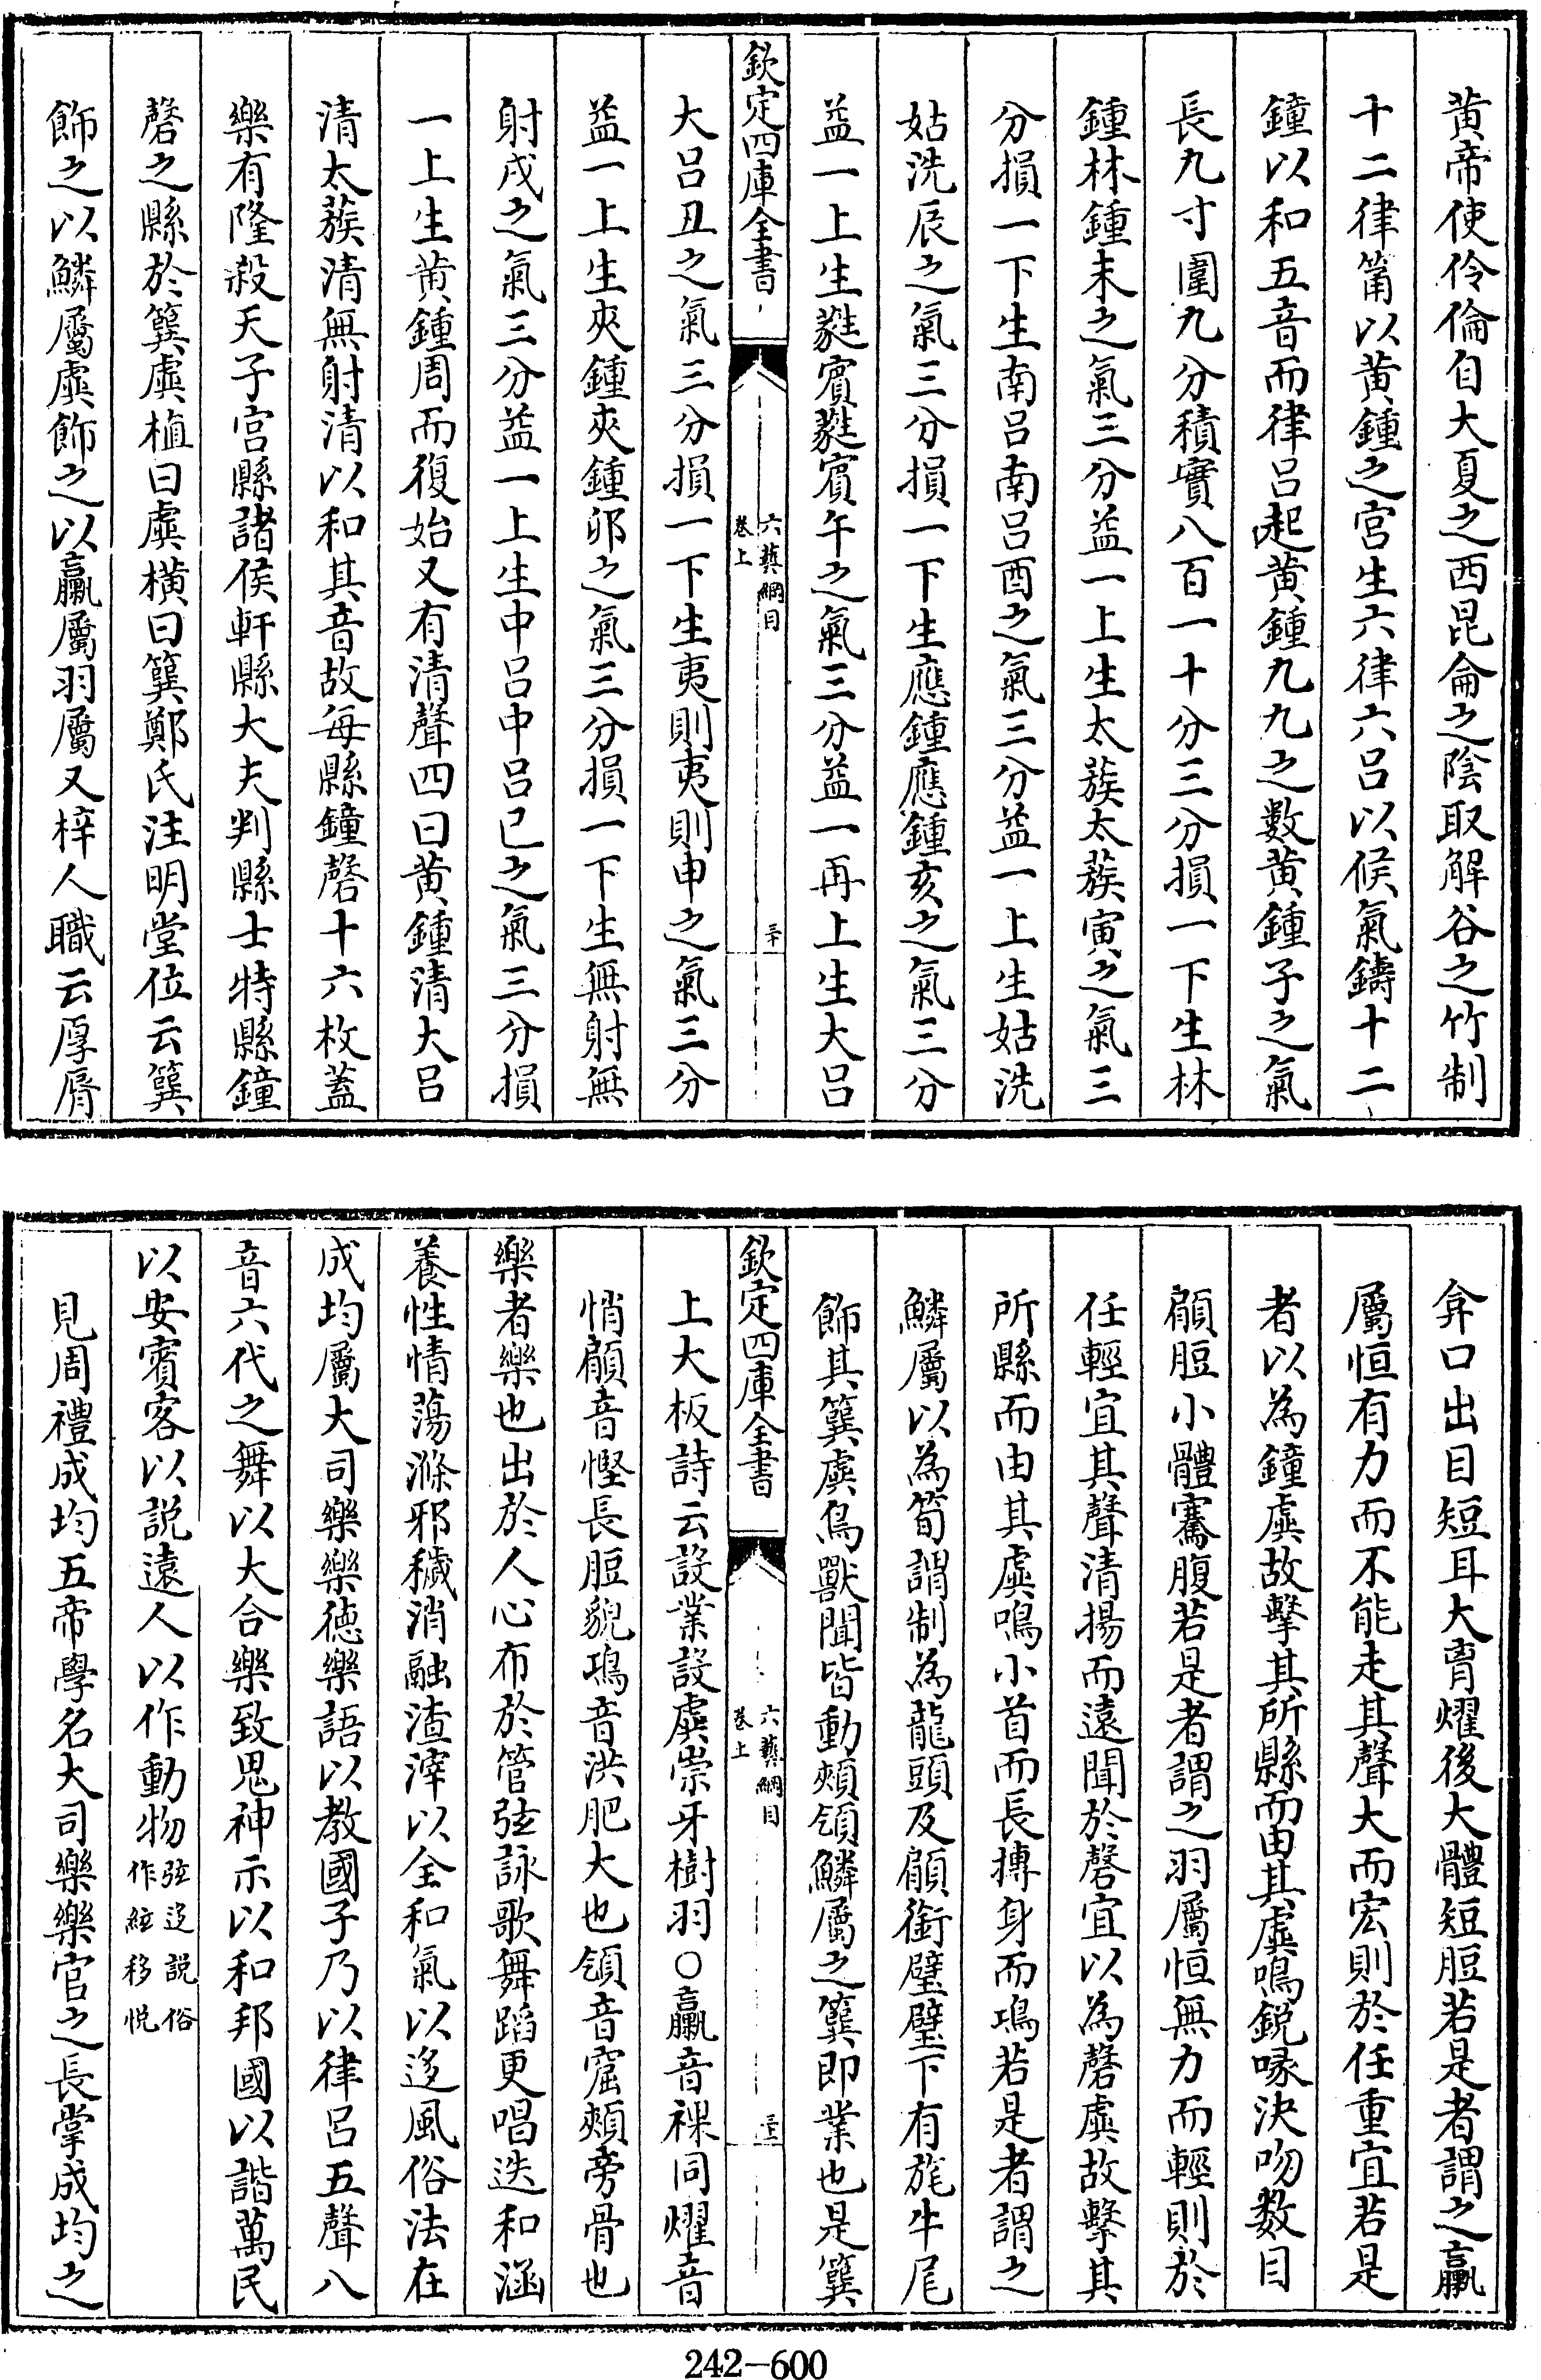 黄帝使伶倫自大夏之西昆侖之陰取解谷之竹制
十二律筩以黄鍾之宫生六律六吕以候氣鑄十二
鐘以和五音而律吕起黄鍾九九之數黄鍾子之氣
長九寸圍九分積實八百一十分三分損一下生林
鍾林鍾未之氣三分益一上生太蔟太蔟寅之氣三
分損一下生南吕南吕酉之氣三分益一上生姑洗
姑洗辰之氣三分損一下生應鍾應鍾亥之氣三分
益一上生蕤賓蕤賓午之氣三分益一再上生大吕
欽定四庫全書
六藝綱目
卷上
三十
大吕丑之氣三分損一下生夷則夷則申之氣三分
益一上生夾鍾夾鍾卯之氣三分損一下生無射無
射戌之氣三分益一上生中吕中吕已之氣三分損
一上生黄鍾周而復始又有清聲四曰黄鍾清大吕
清太蔟清無射清以和其音故每縣鐘磬十六枚蓋
樂有隆殺天子宫縣諸侯軒縣大夫判縣士特縣鐘
磬之縣於簨虡植曰虡横曰簨鄭氏注明堂位云簨
飾之以鱗屬虡飾之以臝屬羽屬又梓人職云厚脣
弇口出目短耳大胷燿後大體短脰若是者謂之臝
屬恒有力而不能走其聲大而宏則於任重宜若是
者以為鐘虡故擊其所縣而由其虡鳴鋭喙決吻数目
顅脰小體騫腹若是者謂之羽屬恒無力而輕則於
任輕宜其聲清揚而遠聞於磬宜以為磬虡故擊其
所縣而由其虡鳴小首而長摶身而鴻若是者謂之
鱗屬以為筍謂制為龍頭及顅銜璧璧下有旄牛尾
飾其簨虡鳥獸聞皆動頰頷鱗屬之簨即業也是簨
欽定四庫全書
六藝綱目
卷上
三十一
上大板詩云設業設虡崇牙樹羽○臝音裸同燿音
悄顅音慳長脰貌鴻音洪肥大也頷音窟頰旁骨也
樂者樂也出於人心布於管弦詠歌舞蹈更唱迭和涵
養性情蕩滌邪穢消融渣滓以全和氣以迻風俗法在
成均屬大司樂樂徳樂語以教國子乃以律吕五聲八
音六代之舞以大合樂致鬼神示以和邦國以諧萬民
以安賓客以説遠人以作動物弦迻説俗
作絃移悦
見周禮成均五帝學名大司樂樂官之長掌成均之
242-600